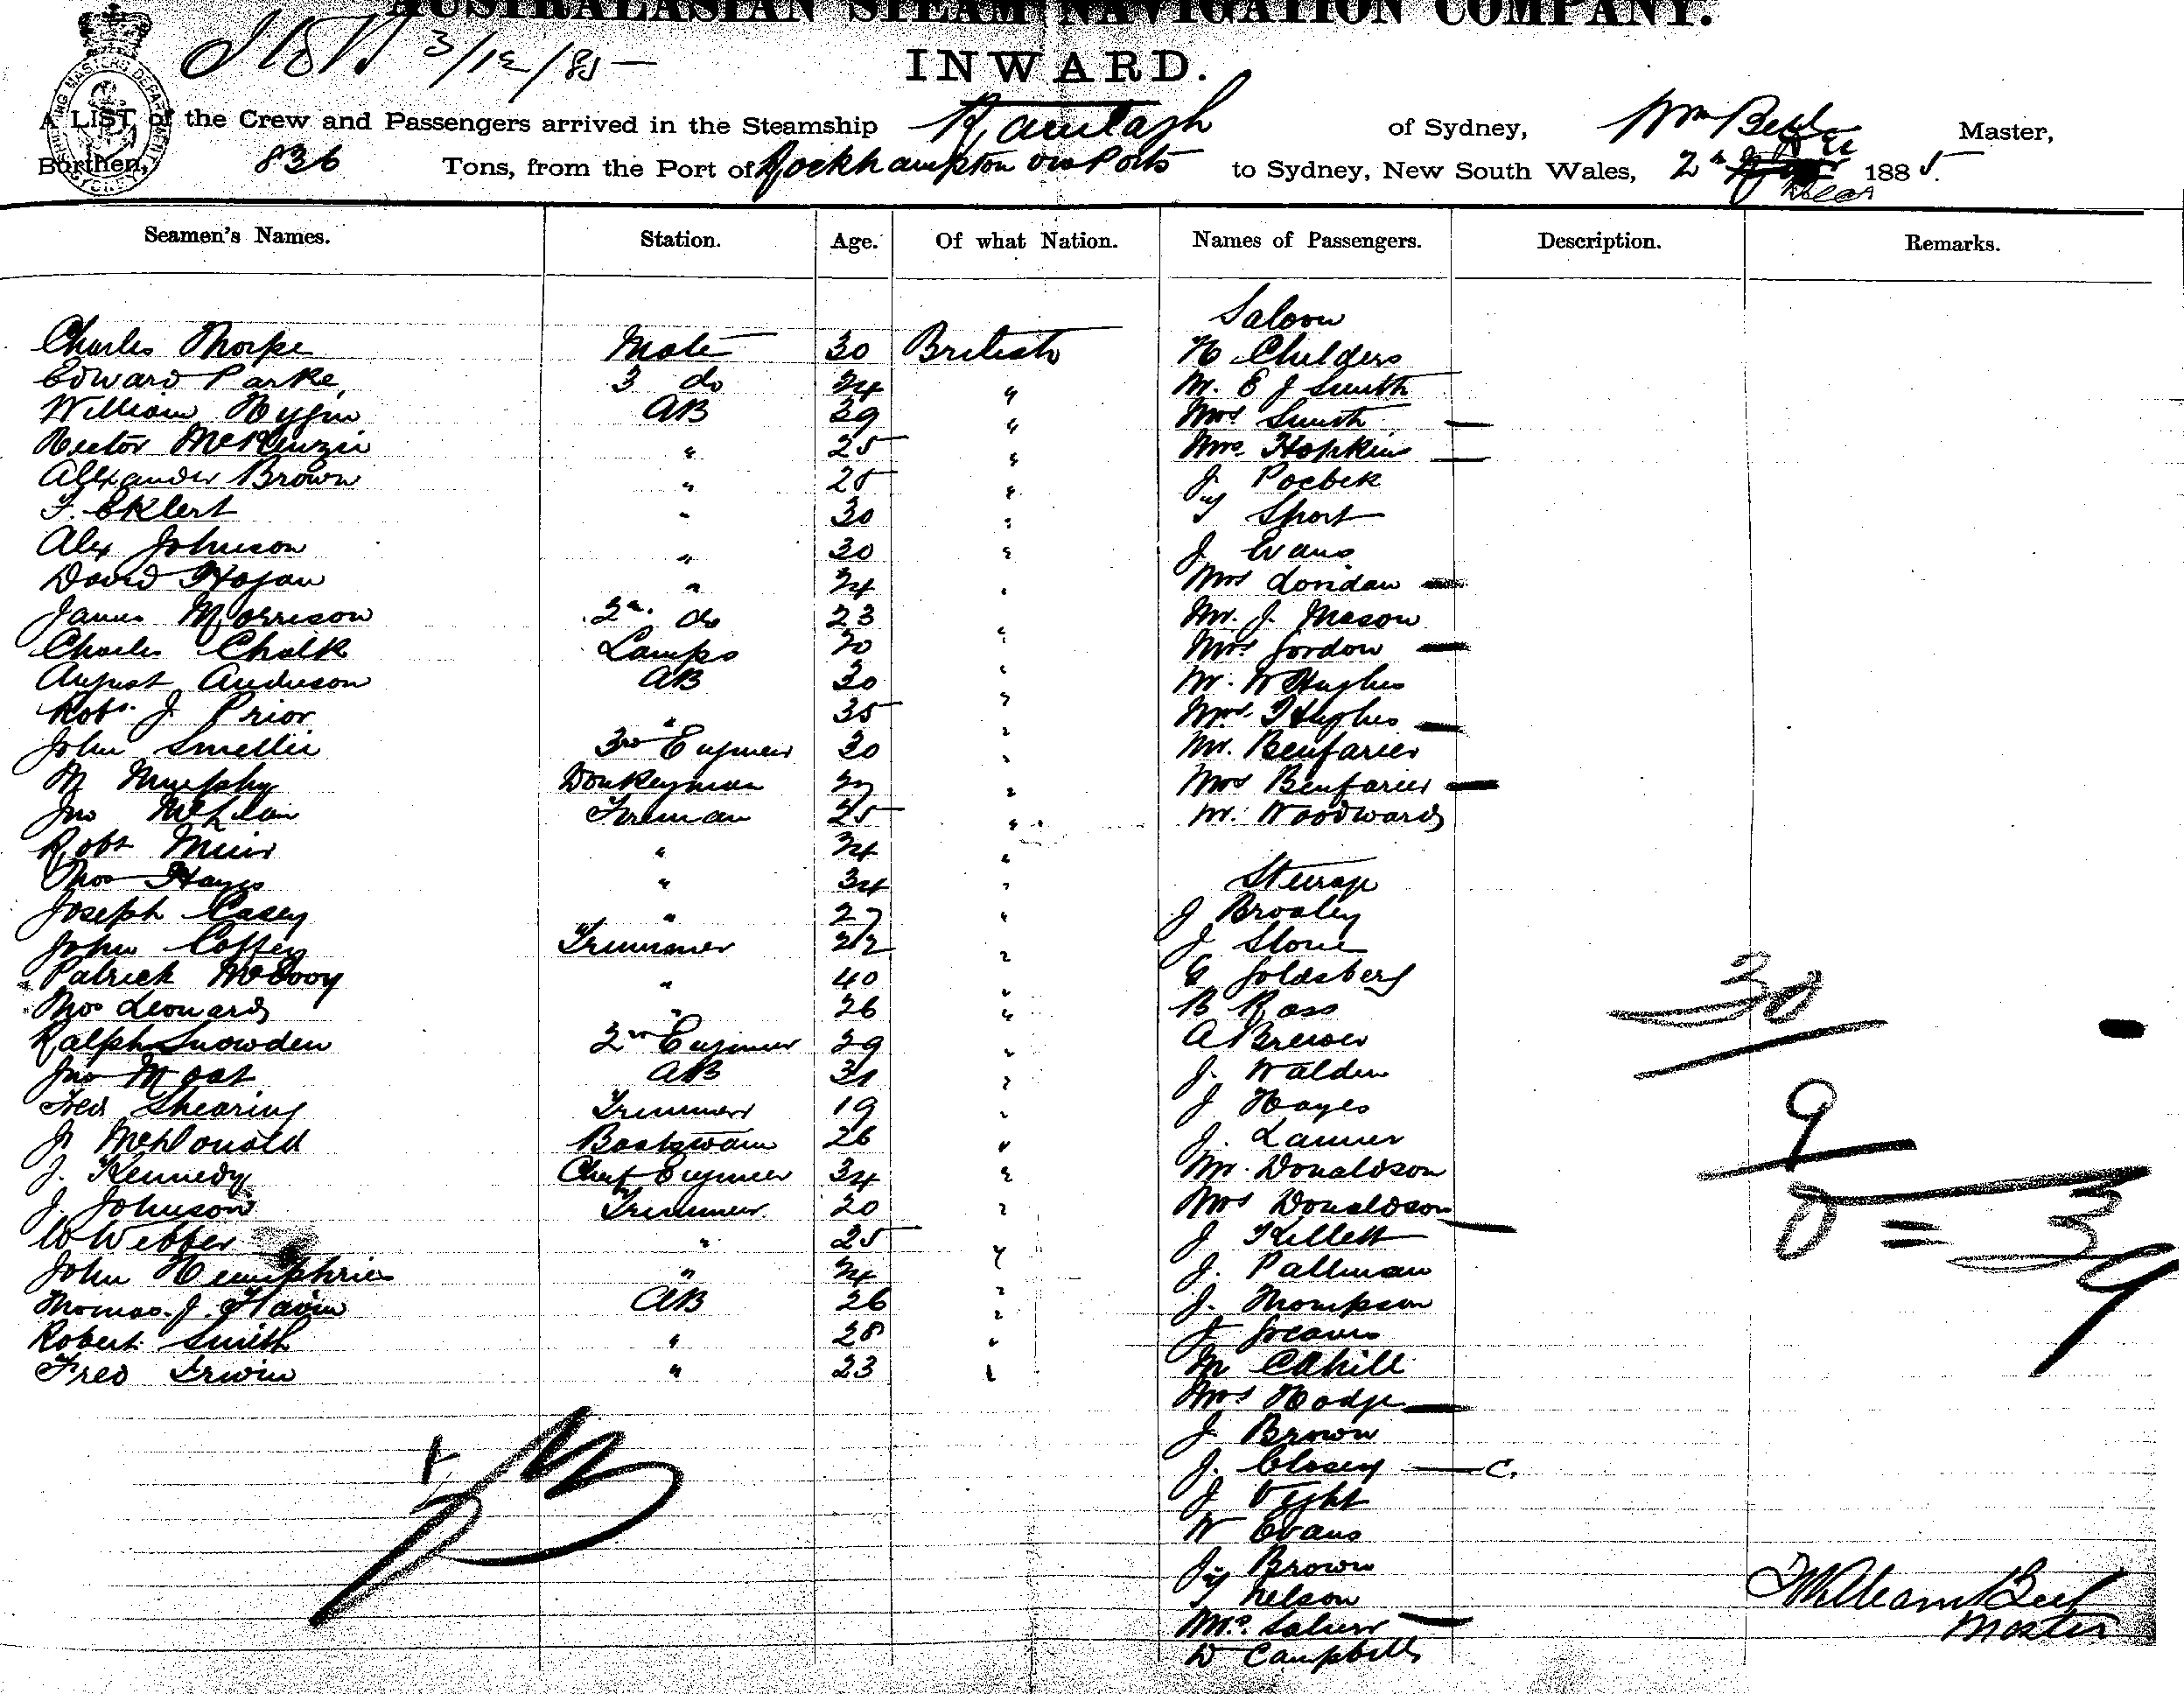 AUSTRALASIAN STEAM NAVIGATION COMPANY.
3/12/85
INWARD.
A LIST of the Crew and Passengers arrived in the Steamship Ranelagh of Sydney, Wm Beel Master,
Burthen, 836 Tons, from the Port of Rockhampton via Ports to Sydney, New South Wales, 2nd Dec 1885.
Seamen's Names. Station. Age. Of what Nation. Names of Passengers. Description. Remarks.
Saloon
Charles Thorpe Mate 30 British H Childers
Edward Parke 3 do 24 " Mr. E J Smith
William AB 29 " Mrs Smith —
Hector McKenzie " 25 " Mrs Hopkins —
Alexander Brown " 25 " J
F. Eklert " 30 " Short
Alex Johnson " 30 " J Evans
David Hogan " 24 " Mrs —
James Morrison 2nd do 23 Mr. J. Mason
Charles Chalk Lamps 20 " Mrs Gordon —
August Anderson AB 30 " Mr. W Hughes
Robt. J Prior " 35 " Mrs Hughes —
John Smellie 3rd Engineer 30 " Mr. Benfarier
M Murphy Donkeyman 27 " Mrs Benfarier —
Jno McLean Fireman 25 " Mr. Woodward
Robt Muir " 24 "
Thos Hayes " 34 " Steerage
Joseph Casey " 27 " J Broaley
John Coffey Trimmer 22 " J Stone
Patrick McEvoy " 40 " Goldsberg
Thos Leonard " 26 " B Ross
Ralph Snowden 2nd Engineer 29 " A Brewer
Jno Moat AB 31 " J. Walden
Fred Shearing Trimmer 19 " J Hayes
J. McDonald Boatswain 26 " J. Lanner
J. Kennedy Chief Engineer 34 " Mr. Donaldson
J. Johnson Trimmer 20 " Mrs Donaldson —
W Webber " 25 " J Kellett
John Humphries " 24 " J. Pallman
Thomas. J. Flavin AB 26 " J. Thompson
Robert Smith " 28 " J Greaves
Fred Irwin " 23 " M Cahill
Mrs Hodge —
J Brown
J. Closey — C.
J Vight
W Evans
Jas Brown
Nelson
Mrs —
D Campbell
30
9
0 = 39
William Beel
Master